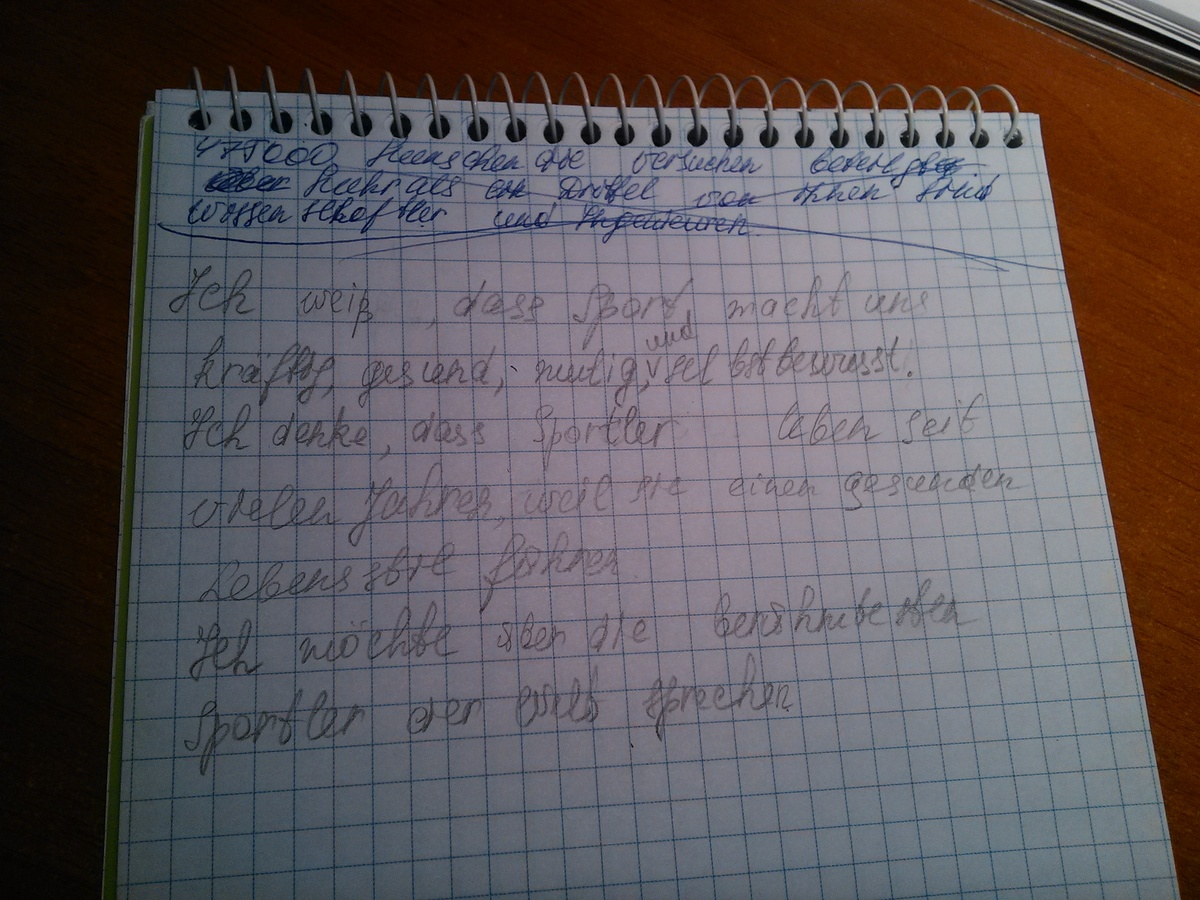 475000 Menschen die versuchen beteiligt
Mehr als ein Drittel von ihnen sind
Wissenschaftler und Ingenieuren.
Ich weiß, dass Sport macht uns
kräftig, gesund, mutig, und selbstbewusst.
Ich denke, dass Sportler leben seit
vielen Jahren, weil sie einen gesunden
Lebensstil führen
Ich möchte über die berühmtesten
Sportler der Welt sprechen